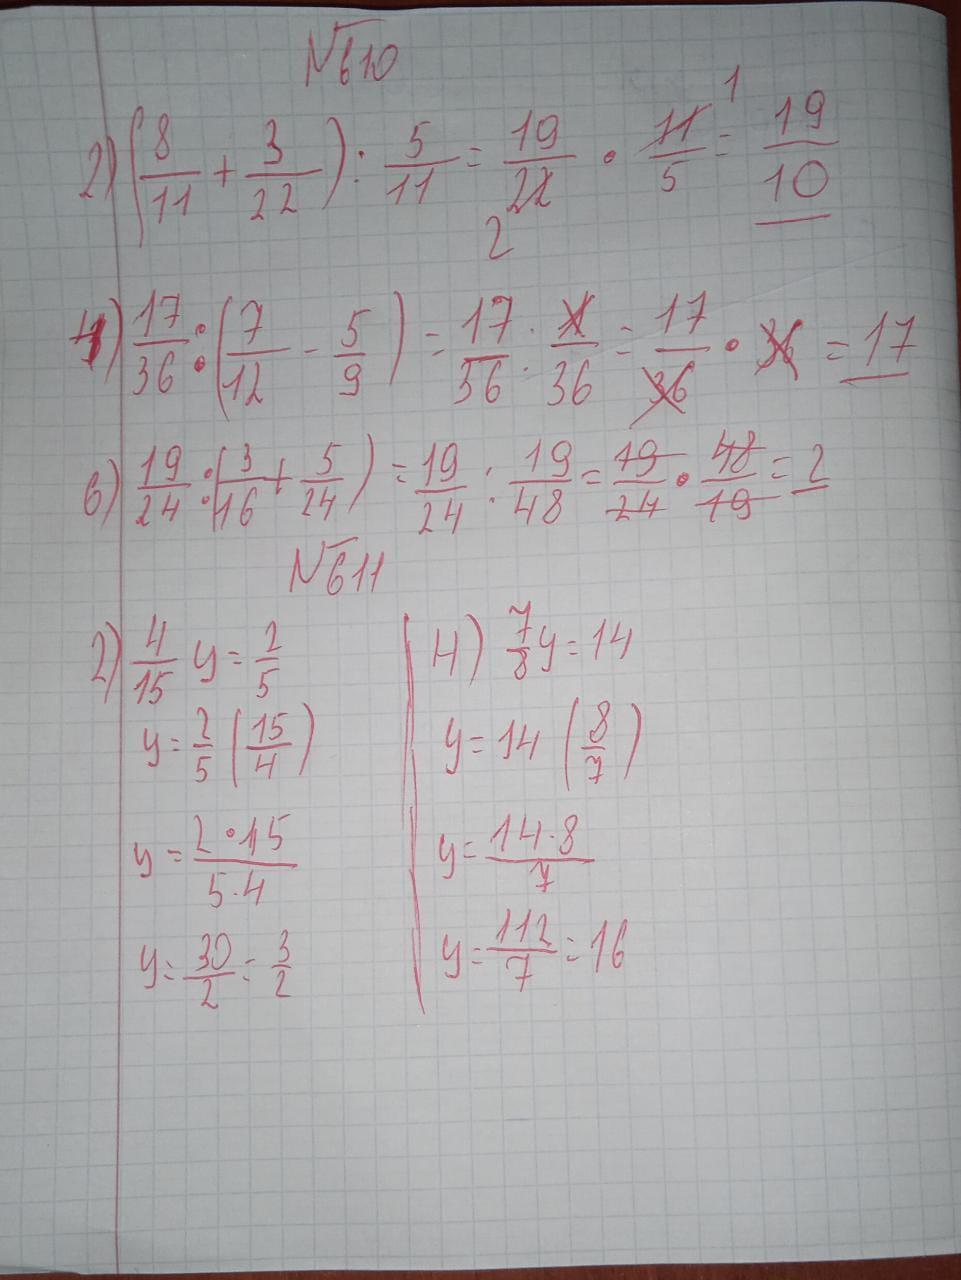 №610
2) (8/11 + 3/22) : 5/11 = 19/22 · 11/5 = 19/10
2 1
4) 17/36 : (7/12 - 5/9) = 17/36 : 1/36 = 17/36 · 36 = 17
6) 19/24 : (3/16 + 5/24) = 19/24 : 19/48 = 19/24 · 48/19 = 2
№611
2) 4/15 y = 2/5
y = 2/5 (15/4)
y = 2·15/5·4
y = 30/2 = 3/2
4) 7/8 y = 14
y = 14 (8/7)
y = 14·8/7
y = 112/7 = 16